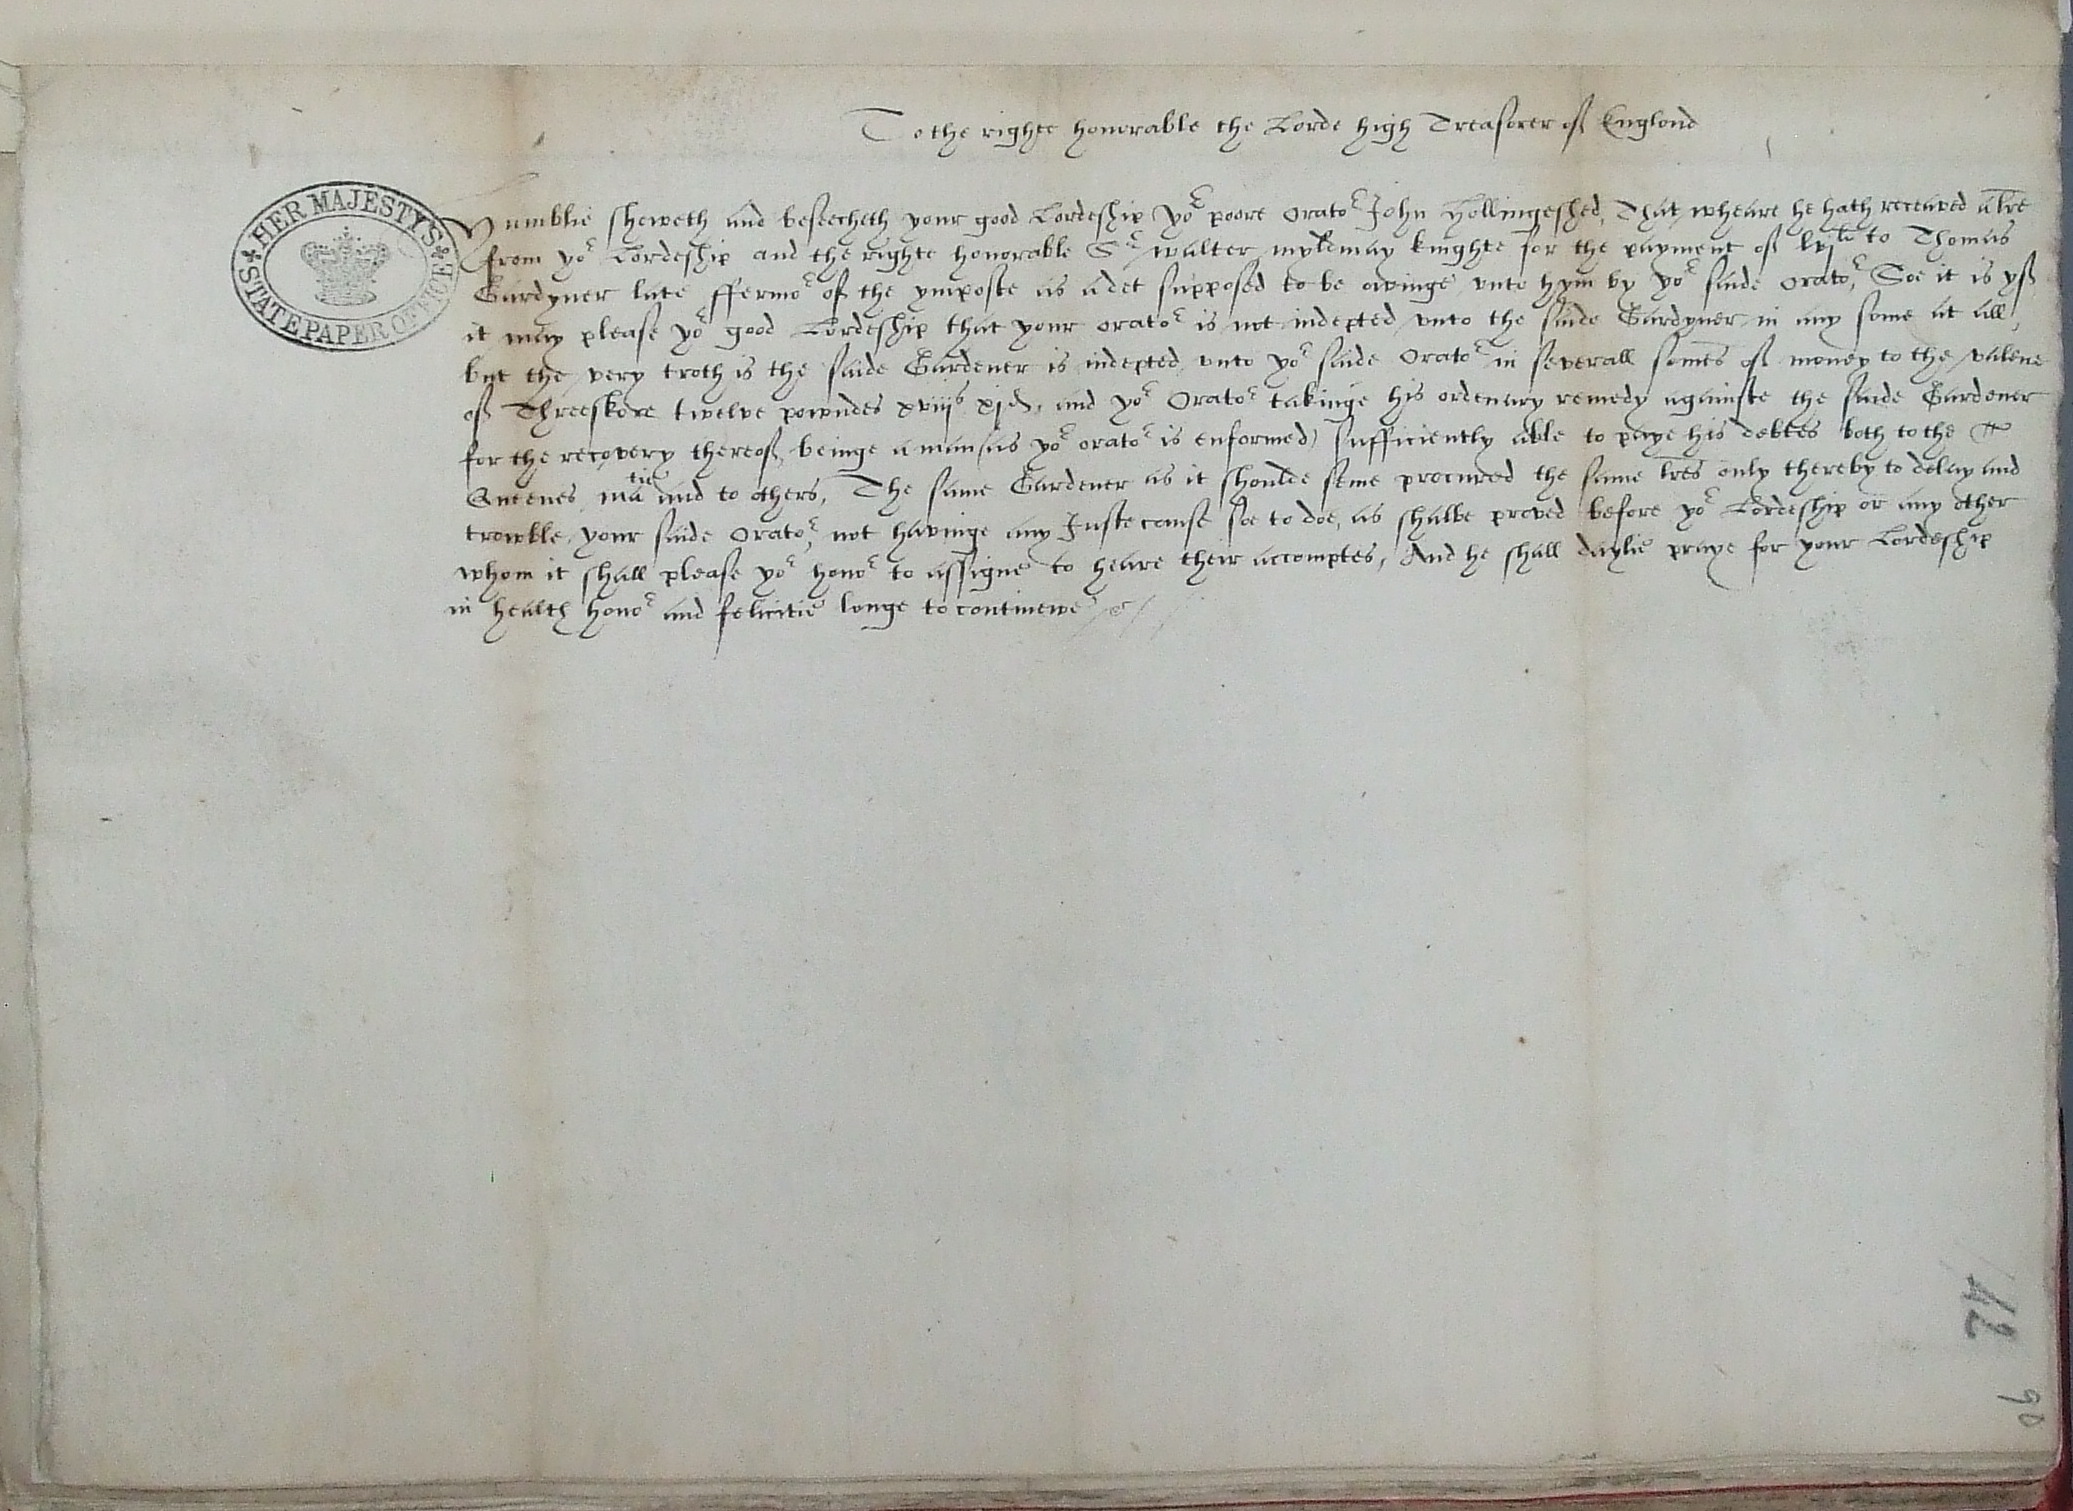 To the righte honorable the Lorde high Treasorer of Englond
HER MAJESTY'S STATE PAPER OFFICE
Humblie sheweth and beseecheth your good Lordeship yor poore orator John Hollingeshed, That wheare he hath receaved a lre
from yor Lordeship and the righte honorable Sr walter myldemay knighte for the payment of lvjli to Thomas
Gardyner late ffermor of the ymposte as a det supposed to be owinge vnto hym by yor saide orator, Soe it is yf
it may please yor good Lordeship that your orator is not indepted vnto the saide Gardyner in any some at all,
but the very troth is the saide Gardener is indepted vnto yor saide Orator in severall somes of money to the valewe
of Threeskore twelve powndes xviijs xjd, and yor Orator takinge his ordenary remedy againste the saide Gardener
for the recovery thereof, beinge a man (as yor orator is enformed) sufficiently able to paye his debtes both to the
Queenes matie and to others, The same Gardener as it shoulde seme procured the same lres only thereby to delay and
trowble your saide Orator, not havinge any Juste cause soe to doe, as shalbe proved before yor Lordeship or any other
whom it shall please yor honor to assigne to heare their accomptes, And he shall daylie praye for your Lordeship
in health honor and felicitie longe to continewe &c
42
90